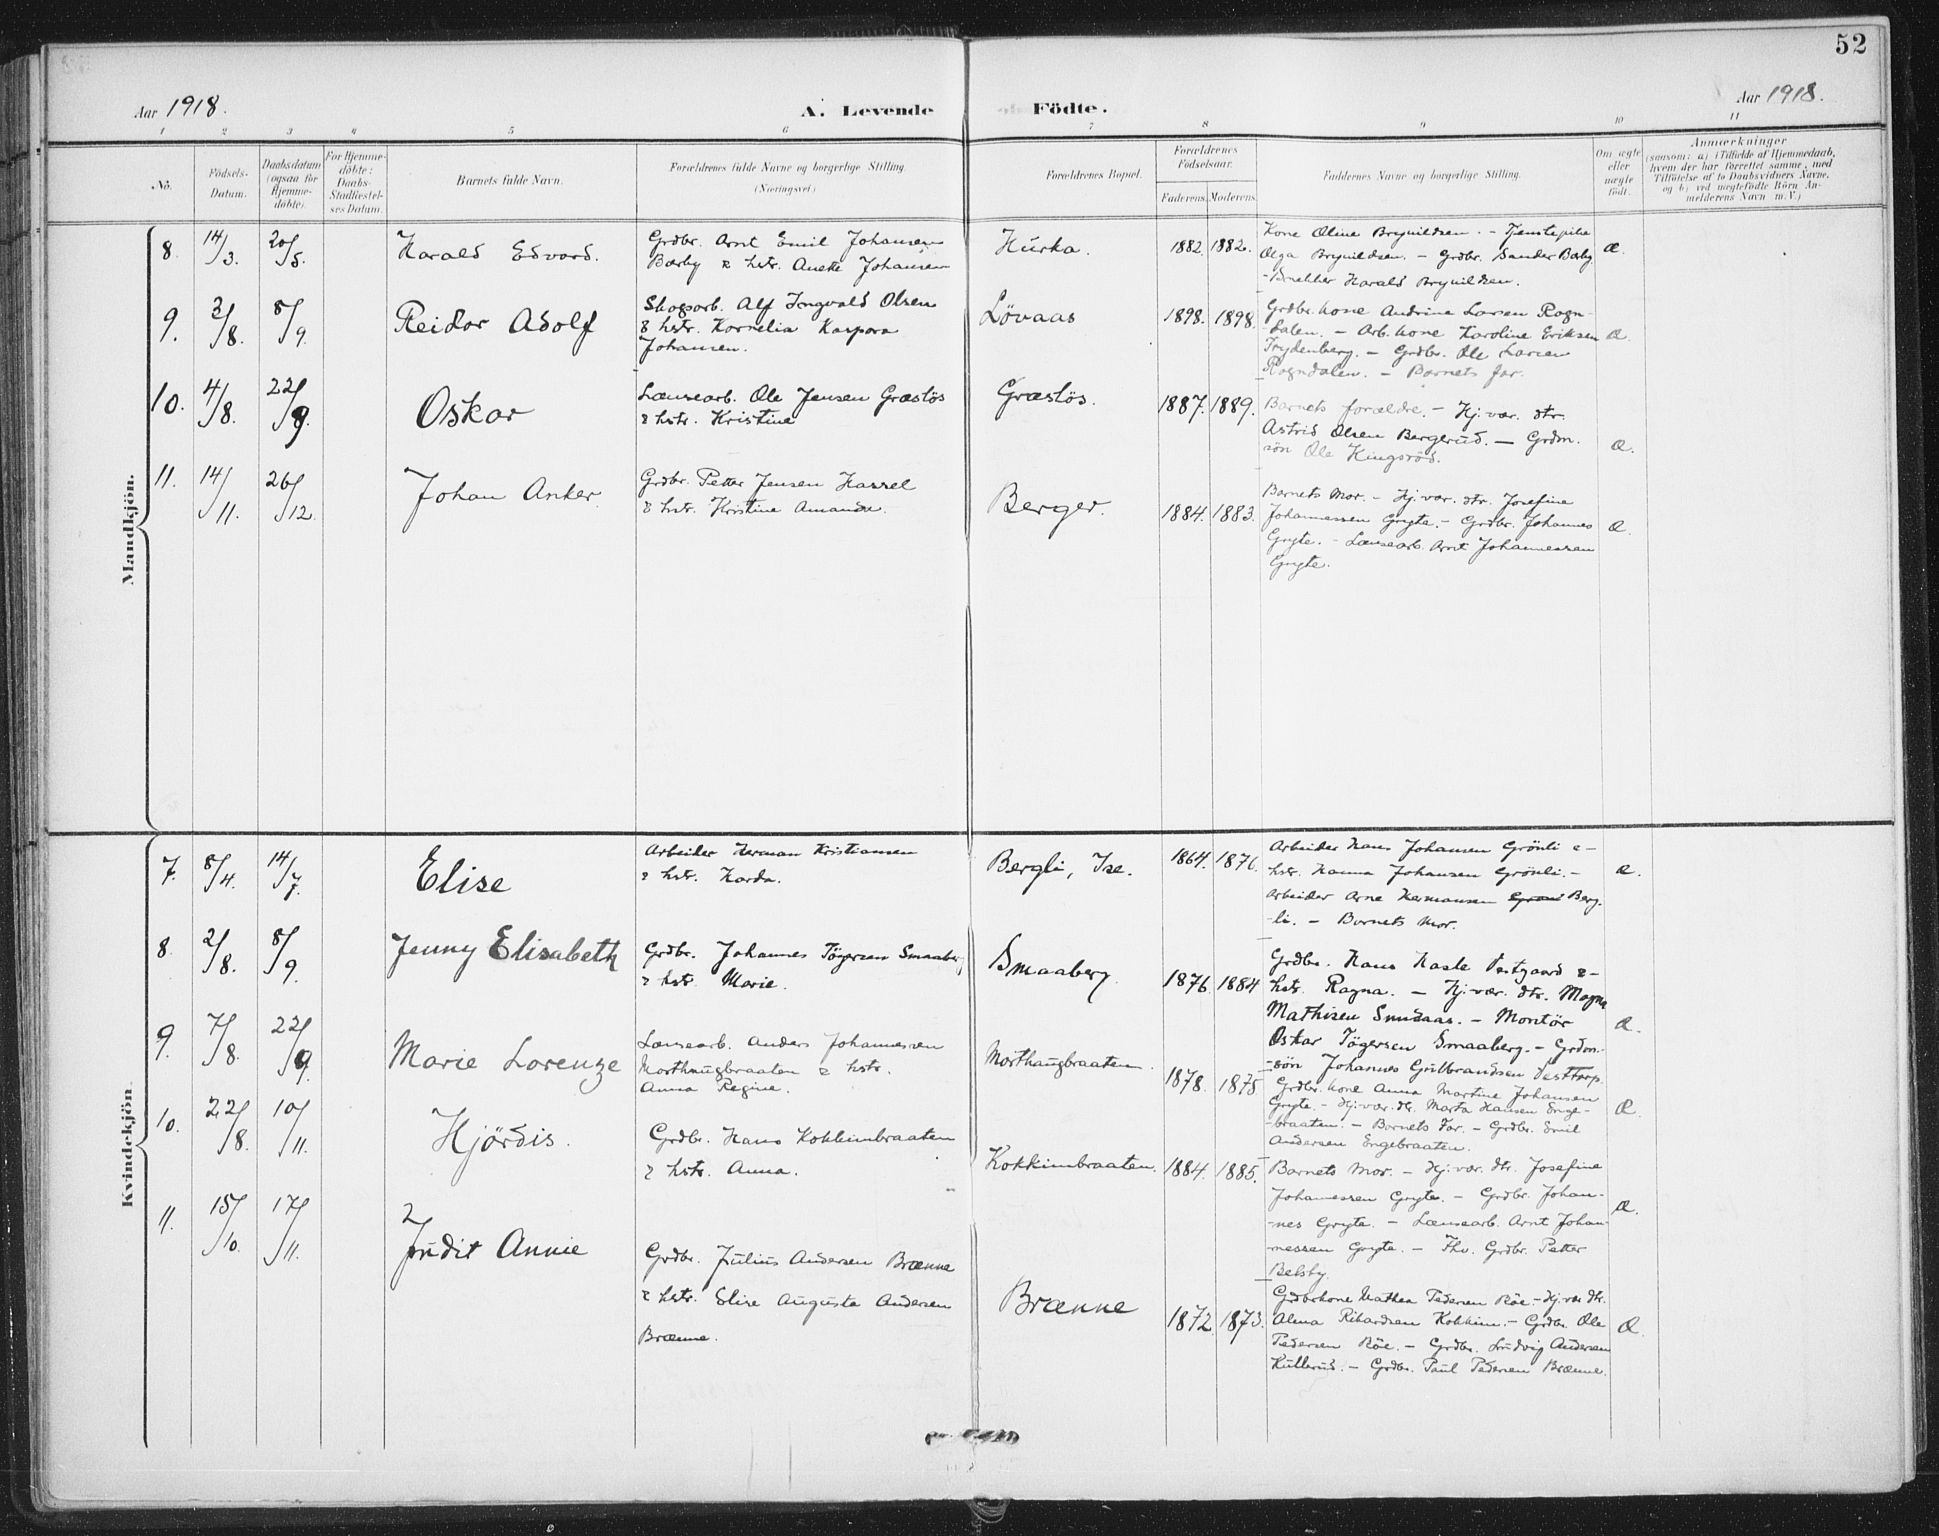 52
Aar 1918.
A. Levende Födte.
Aar 1918.
1 2 3 4 5 6 7 8 9 10 11
No.
Födsels-
Datum.
Daabsdatum
(ogsaa for
Hjemme-
döbte).
For Hjemme-
döbte:
Daabs-
Stadfæstel-
ses Datum.
Barnets fulde Navn.
Forældrenes fulde Navne og borgerlige Stilling.
(Næringsvei)
Forældrenes Bopæl.
Forældrenes
Födselsaar.
Faderens. Moderens.
Faddernes Navne og borgerlige Stilling.
Om ægte
eller
uægte
født.
Anmærkninger
(saasom: a) i Tilfælde af Hjemmedaab,
hvem der har forrettet samme, med
Tilföielse af to Daabsvidners Navne,
og b) ved uægtefödte Börn An-
melderens Navn m.V.)
Mandkjön.
8. 14/3. 20/5. Harald Edvard.
Grdbr. Arnt Emil Johansen
Barby & hstr. Anette Johansen
Hurka. 1882. 1882.
Kone Oline Brynildsen. - Tjenestepike
Olga Brynildsen. - Grdbr. Sander Barby.
- Snekker Harald Brynildsen.
Æ.
9. 3/8. 8/9. Reidar Adolf
Skogsarb. Alf Ingvald Olsen
& hstr. Kornelia Kaspara
Johansen.
Lövaas 1898. 1898.
Grdbr. kone Andrine Larsen Rogn-
dalen. - Arb. kone Karoline Eriksen
Frydenberg. - Grdbr. Ole Larsen
Rogndalen. - Barnets far.
Æ.
10. 4/8. 22/9. Oskar
Lænsearb. Ole Jensen Græslös
& hstr. Kristine
Græslös. 1887. 1889.
Barnets forældre. - Hj. vær. dtr.
Astrid Olsen Bergerud. - Grdm.
sön Ole Kingsröd.
Æ.
11. 14/11. 26/12. Johan Anker.
Grdbr. Petter Jensen Hassel
& hstr. Kristine Amanda.
Berger. 1884. 1883.
Barnets Mor. - Hj. vær. dtr. Josefine
Johannessen Gryte. - Grdbr. Johannes
Gryte. - Lænsearb. Arnt Johannessen
Gryte.
Æ.
Kvindekjön
7. 8/4. 14/7. Elise
Arbeider Herman Kristiansen
& hstr. Harda.
Bergli, Ise. 1864. 1876.
Arbeider Hans Johansen Grönli &
hstr. Hanna Johansen Grönli. -
Arbeider Arne Hermansen Berg-
-li. - Barnets Mor.
Æ.
8. 2/8. 8/9. Jenny Elisabeth
Grdbr. Johannes Tögersen Smaaberg
& hstr. Marie.
Smaaberg. 1876. 1884
Grdbr. Hans Hasle Vestgaard &
hstr. Ragna. - Hj. vær. dtr. Magna
Mathisen Smidaas. - Montör
Oskar Tögersen Smaaberg. - Grdm.-
-sön Johannes Gulbrandsen Vesttorp.
Æ.
9. 7/8. 22/9. Marie Lorenze
Lænsearb. Anders Johannessen
Morthaugbraaten & hstr.
Anna Regine.
Morthaugbraaten. 1878. 1875
Grdbr. kone Anna Martine Johansen
Gryte. - Hj. vær. dtr. Marta Hansen Enge-
-braaten. - Barnets Far. - Grdbr. Emil
Andersen Engebraaten.
Æ.
10. 22/8. 10/11. Hjördis.
Grdbr. Hans Kokkimbraaten
& hstr. Anna.
Kokkimbraaten. 1884. 1885.
Barnets Mor. - Hj. vær. dtr. Josefine
Johannessen Gryte. - Grdbr. Johan-
-nes Gryte. - Lænsearb. Arnt Johan-
-nessen Gryte. - Fhv. Grdbr. Petter
Belsby.
Æ.
11. 15/10. 17/11. Judit Annie
Grdbr. Julius Andersen Brænne
& hstr. Elise Augusta Andersen
Brænne.
Brænne 1872. 1873.
Grdbrkone Mathea Pedersen Röe. - Hj. vær dtr.
Alma Rikardsen Kokkim. - Grdbr. Ole
Pedersen Röe. - Grdbr. Ludvig Andersen
Kullerud. - Grdbr. Paul Pedersen Brænne.
Æ.